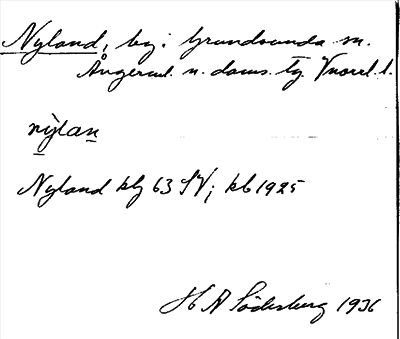 Nyland, by i Grundsunda sn.
Ångerml. n. doms. tg Vnorrl. l.
nỳlan
Nyland kbg 63 SV; kb 1925
H A Söderberg 1936